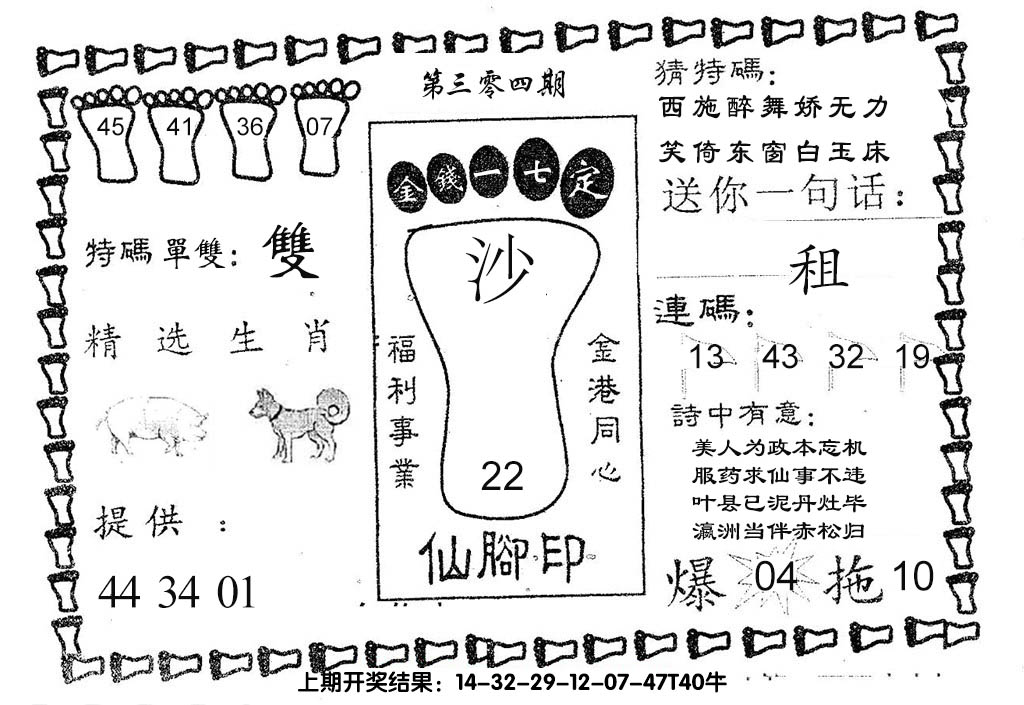 第三零四期
45 41 36 07
特碼單雙：雙
精选生肖
提供：
44 34 01
金錢一七定
沙
福利事業
金港同心
22
仙腳印
猜特碼：
西施醉舞娇无力
笑倚东窗白玉床
送你一句话：
租
連碼：
13 43 32 19
詩中有意：
美人为政本忘机
服药求仙事不违
叶县已泥丹灶毕
瀛洲当伴赤松归
爆 04 拖 10
上期开奖结果：14-32-29-12-07-47T40牛